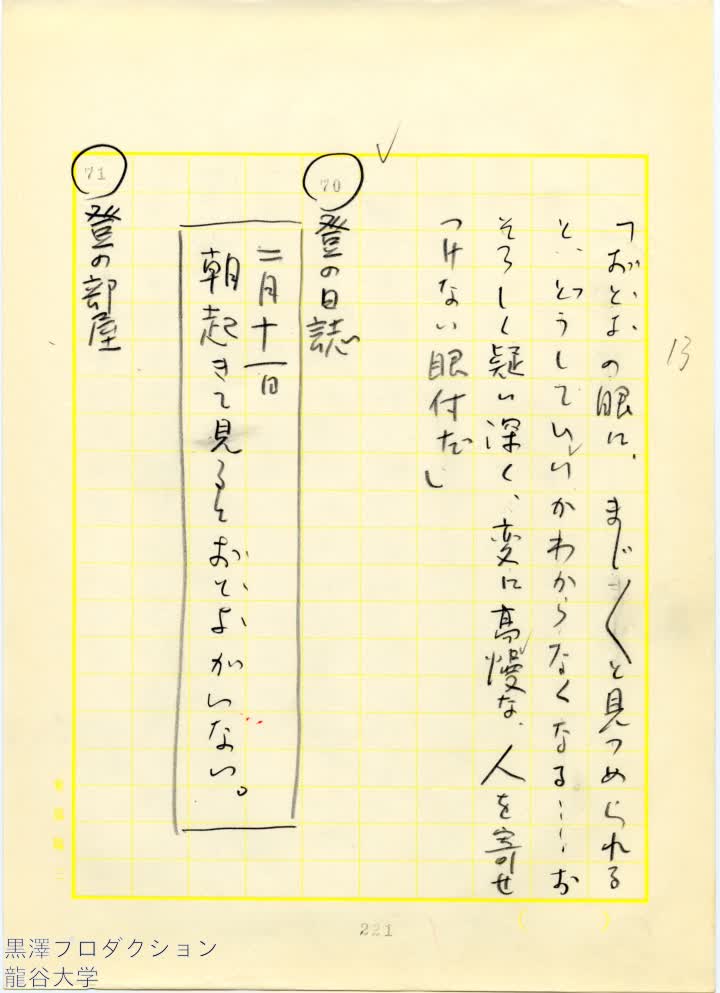 13
「おとよの眼に、まじ〱と見つめられる
と、どうしていゝかわからなくなる……お
そろしく疑い深く、変に高慢な、人を寄せ
つけない眼付だ」
70
登の日誌
二月十一日
朝起きて見るとおとよがいない。
71
登の部屋
221
黒澤プロダクション
龍谷大学